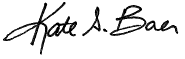 Kate S. Baer